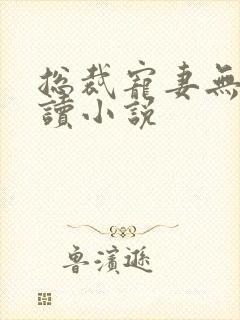 總裁寵妻無
讀小說
魯濱遜